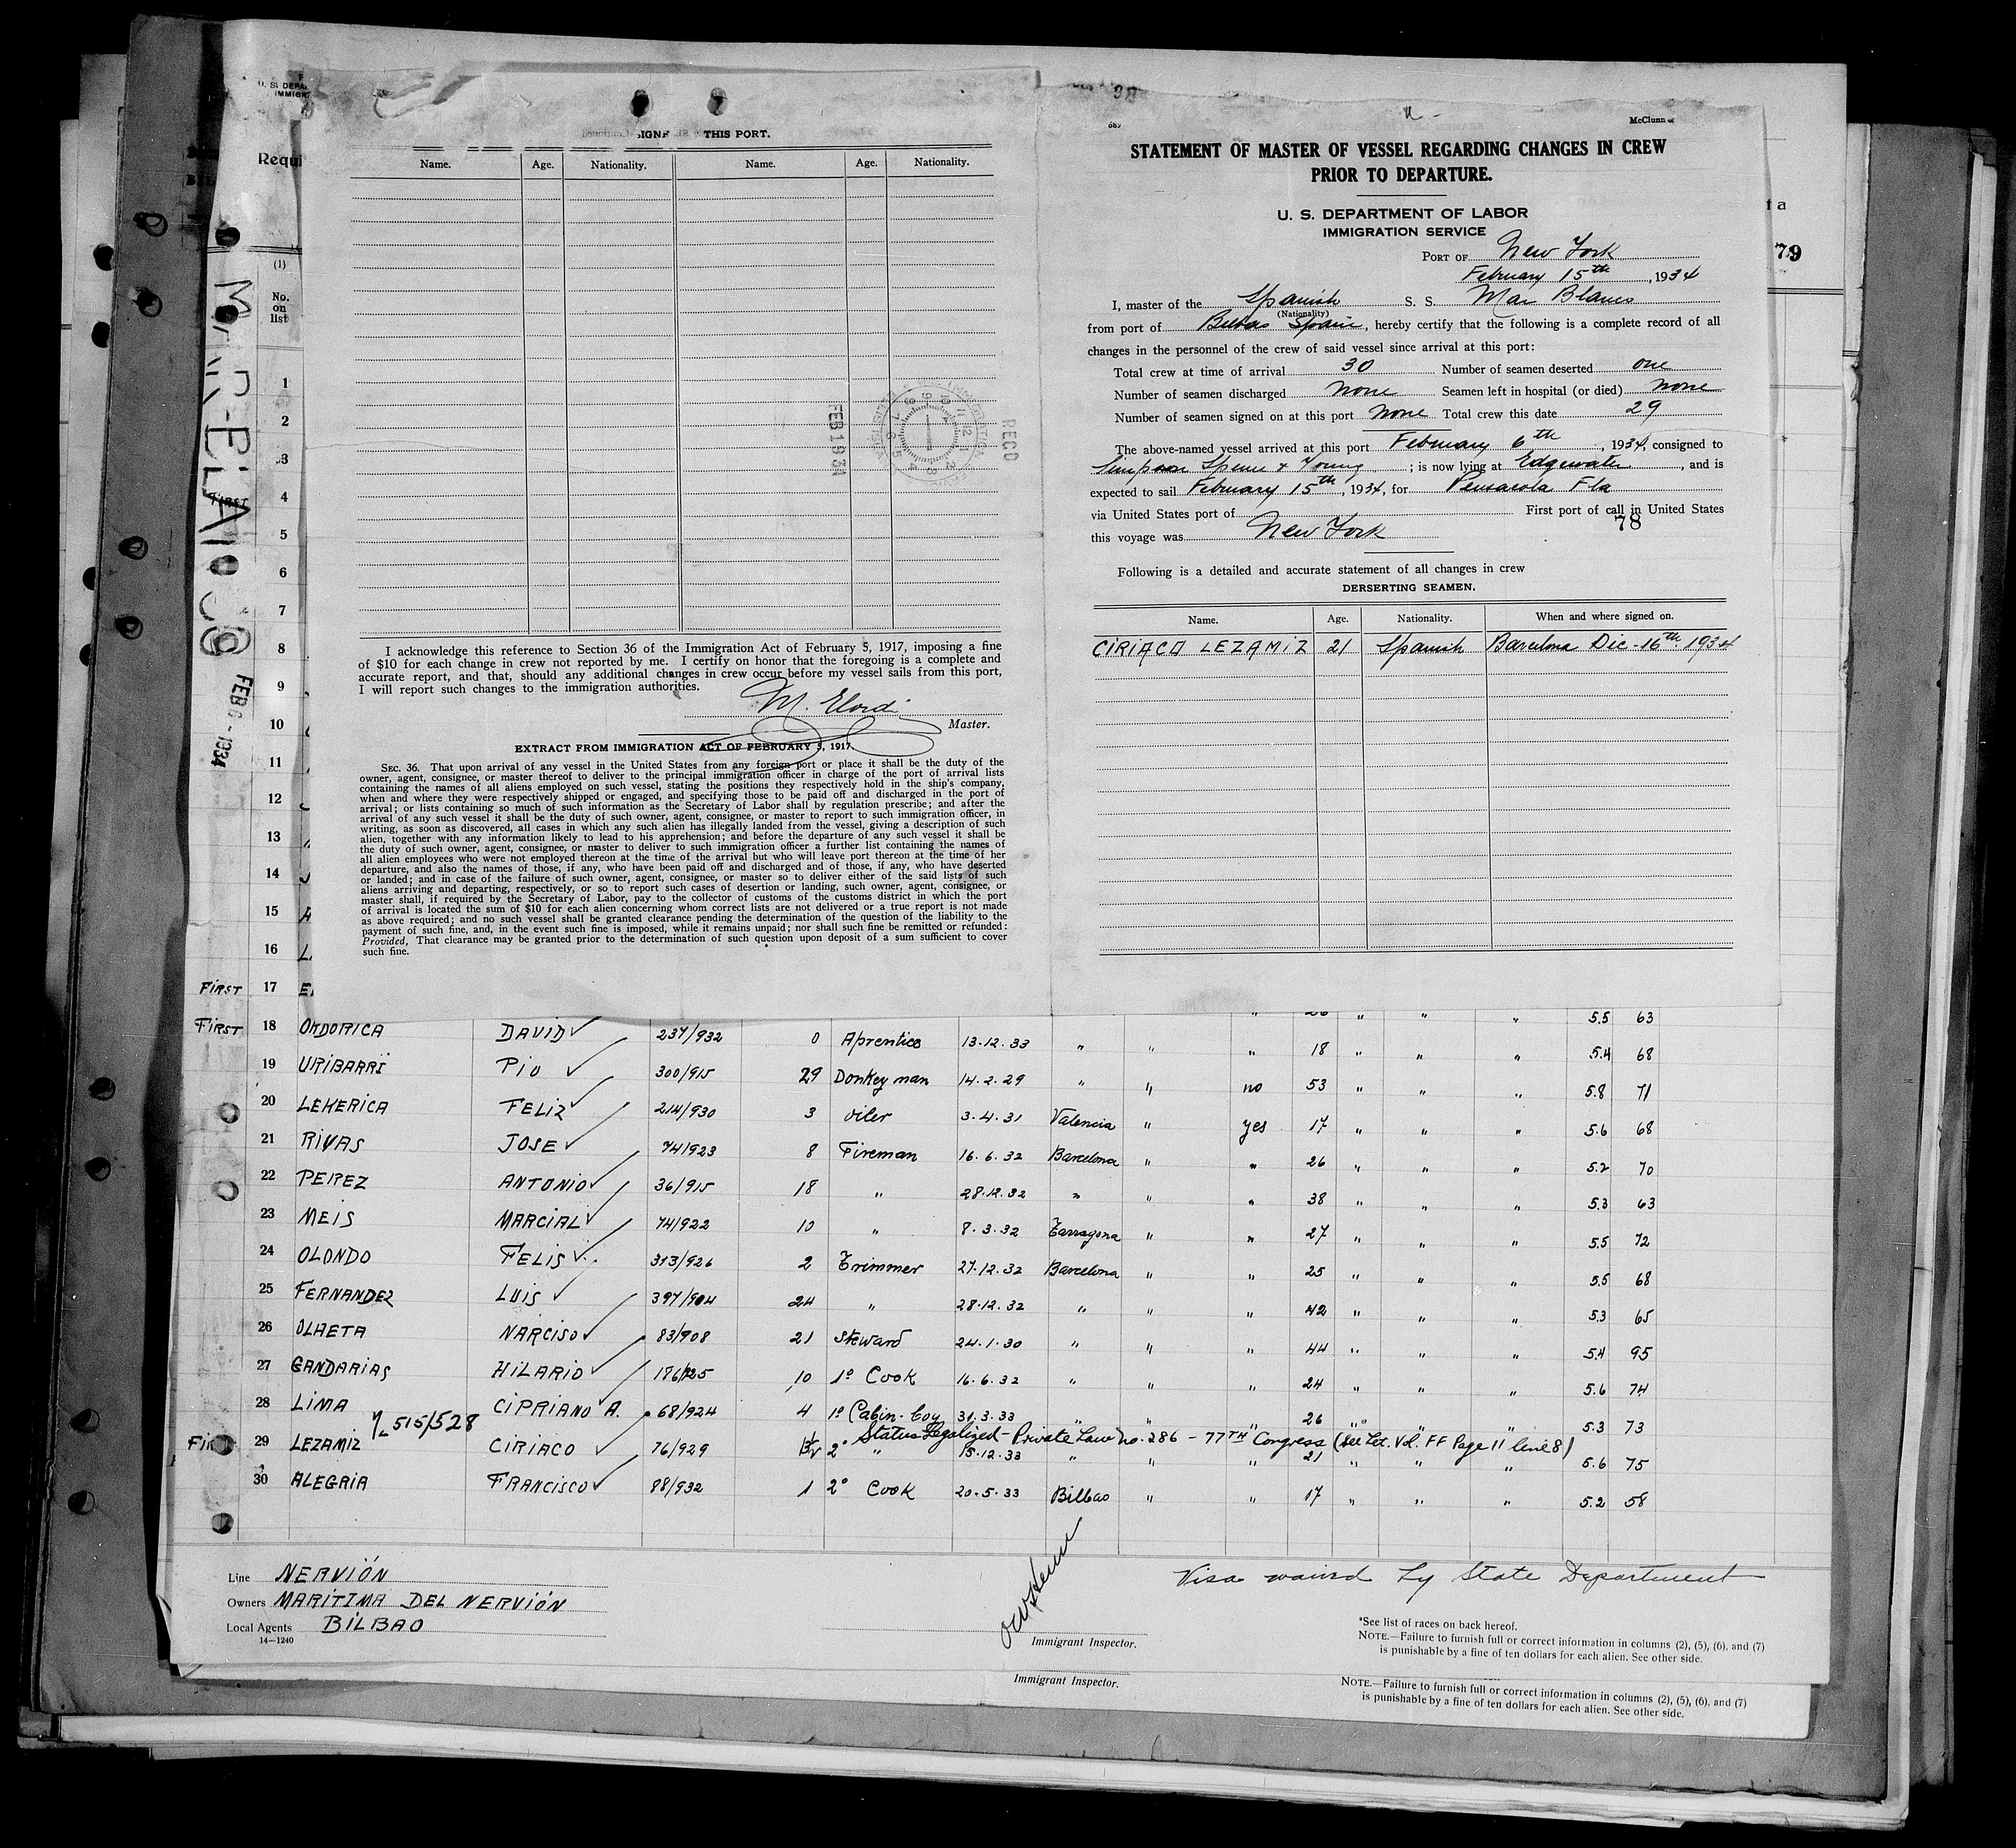 U. S. DEPA
IMMIGR
Requi
(1)
No.
on
list
MAR-BLANCO
FEB 6 - 1934
THIS PORT.
Name. Age. Nationality. Name. Age. Nationality.
FEB 19 34
REC'D
I acknowledge this reference to Section 36 of the Immigration Act of February 5, 1917, imposing a fine
of $10 for each change in crew not reported by me. I certify on honor that the foregoing is a complete and
accurate report, and that, should any additional changes in crew occur before my vessel sails from this port,
I will report such changes to the immigration authorities.
M. Elordi
Master.
EXTRACT FROM IMMIGRATION ACT OF FEBRUARY 5, 1917.
SEC. 36. That upon arrival of any vessel in the United States from any foreign port or place it shall be the duty of the
owner, agent, consignee, or master thereof to deliver to the principal immigration officer in charge of the port of arrival lists
containing the names of all aliens employed on such vessel, stating the positions they respectively hold in the ship's company,
when and where they were respectively shipped or engaged, and specifying those to be paid off and discharged in the port of
arrival; or lists containing so much of such information as the Secretary of Labor shall by regulation prescribe; and after the
arrival of any such vessel it shall be the duty of such owner, agent, consignee, or master to report to such immigration officer, in
writing, as soon as discovered, all cases in which any such alien has illegally landed from the vessel, giving a description of such
alien, together with any information likely to lead to his apprehension; and before the departure of any such vessel it shall be
the duty of such owner, agent, consignee, or master to deliver to such immigration officer a further list containing the names of
all alien employees who were not employed thereon at the time of the arrival but who will leave port thereon at the time of her
departure, and also the names of those, if any, who have been paid off and discharged and of those, if any, who have deserted
or landed; and in case of the failure of such owner, agent, consignee, or master so to deliver either of the said lists of such
aliens arriving and departing, respectively, or so to report such cases of desertion or landing, such owner, agent, consignee, or
master shall, if required by the Secretary of Labor, pay to the collector of customs of the customs district in which the port
of arrival is located the sum of $10 for each alien concerning whom correct lists are not delivered or a true report is not made
as above required; and no such vessel shall be granted clearance pending the determination of the question of the liability to the
payment of such fine, and, in the event such fine is imposed, while it remains unpaid; nor shall such fine be remitted or refunded:
Provided, That clearance may be granted prior to the determination of such question upon deposit of a sum sufficient to cover
such fine.
689 McClunn
STATEMENT OF MASTER OF VESSEL REGARDING CHANGES IN CREW
PRIOR TO DEPARTURE.
U. S. DEPARTMENT OF LABOR
IMMIGRATION SERVICE
PORT OF New York
February 15th, 1934
I, master of the Spanish S. S. Mar Blanco
(Nationality)
from port of Bilbao Spain, hereby certify that the following is a complete record of all
changes in the personnel of the crew of said vessel since arrival at this port:
Total crew at time of arrival 30 Number of seamen deserted one
Number of seamen discharged none Seamen left in hospital (or died) none
Number of seamen signed on at this port none Total crew this date 29
The above-named vessel arrived at this port February 6th, 1934, consigned to
Simpson Spence & Young; is now lying at Edgewater, and is
expected to sail February 15th, 1934, for Pensacola Fla
via United States port of First port of call in United States
78
this voyage was New York
Following is a detailed and accurate statement of all changes in crew
DERSERTING SEAMEN.
Name. Age. Nationality. When and where signed on.
CIRIACO LEZAMIZ 21 Spanish Barcelona Dic-16th 1934
79
1
2
3
FIRST 4
5
6
7
8
9
10
11
12
13
14
15 A
16 L
FIRST 17 E
" 26 " " " 5.5 63
FIRST 18 ONDORICA DAVID 237/932 0 Aprentice 13.12.33 " " " 18 " " " 5.4 68
19 URIBARRI PIO 300/915 29 Donkey man 14.2.29 " " no 53 " " " 5.8 71
20 LEKERICA FELIZ 214/930 3 oiler 3.4.31 Valencia " yes 17 " " " 5.6 68
21 RIVAS JOSE 74/923 8 Fireman 16.6.32 Barcelona " " 26 " " " 5.2 70
22 PEREZ ANTONIO 36/915 18 " 28.12.32 " " " 38 " " " 5.3 63
23 MEIS MARCIAL 74/922 10 " 8.3.32 Tarragona " " 27 " " " 5.5 72
24 OLONDO FELIS 313/926 2 Trimmer 27.12.32 Barcelona " " 25 " " " 5.5 68
25 FERNANDEZ LUIS 397/904 24 " 28.12.32 " " " 42 " " " 5.3 65
26 OLAETA NARCISO 83/908 21 Steward 24.1.30 " " " 44 " " " 5.4 95
27 GANDARIAS HILARIO 186/925 10 1º Cook 16.6.32 " " " 24 " " " 5.6 74
28 LIMA CIPRIANO A. 68/924 4 1º Cabin-boy 31.3.33 " " " 26 " " " 5.3 73
515/528 Status Legalized - Private Law No. 286 - 77TH Congress (See Let. Vol. FF Page 11 line 8)
FIRST 29 LEZAMIZ CIRIACO 76/929 2º " 15.12.33 " " " 21 " " " 5.6 75
30 ALEGRIA FRANCISCO 88/932 1 2º Cook 20.5.33 Bilbao " " 17 " " " 5.2 58
Line NERVIÓN
Owners MARITIMA DEL NERVIÓN
Local Agents BILBAO
14—1240
Immigrant Inspector.
Visa waived by State Department
*See list of races on back hereof.
NOTE.—Failure to furnish full or correct information in columns (2), (5), (6), and (7)
is punishable by a fine of ten dollars for each alien. See other side.
Immigrant Inspector.
NOTE.—Failure to furnish full or correct information in columns (2), (5), (6), and (7)
is punishable by a fine of ten dollars for each alien. See other side.